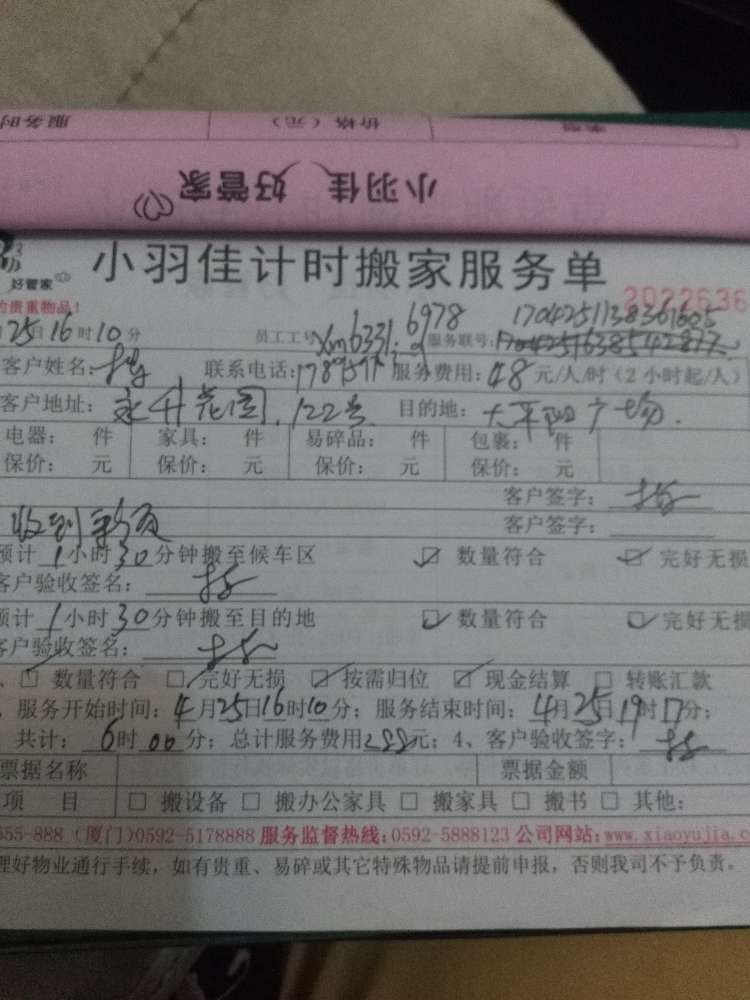 服务时
价格（元）
小羽佳 好管家
小羽佳计时搬家服务单
好管家
的贵重物品！
25日16时10分 员工工号 xm6331. 6978 服务联号:
客户姓名: 联系电话: 服务费用: 48元/人/时（2小时起/人）
客户地址： 永升花园，122号 目的地： 太平阳广场.
电器： 件 家具： 件 易碎品： 件 包裹： 件
保价： 元 保价： 元 保价： 元 保价： 元
客户签字：
收到 客户签字：
预计1小时30分钟搬至候车区 ☑ 数量符合 ☑ 完好无损
客户验收签名：
预计1小时30分钟搬至目的地 ☑ 数量符合 ☑ 完好无损
客户验收签名：
、☑ 数量符合 ☐ 完好无损 ☑ 按需归位 ☑ 现金结算 ☐ 转账汇款
服务开始时间：4月25日16时10分；服务结束时间：4月25日19时17分；
共计：6时00分；总计服务费用288元；4、客户验收签字：
票据名称 票据金额
项 目 ☐ 搬设备 ☐ 搬办公家具 ☐ 搬家具 ☐ 搬书 ☐ 其他：
555-888（厦门）0592-5178888 服务监督热线：0592-5888123 公司网站：www.xiaoyujia.c
理好物业通行手续，如有贵重、易碎或其它特殊物品请提前申报，否则我司不予负责。